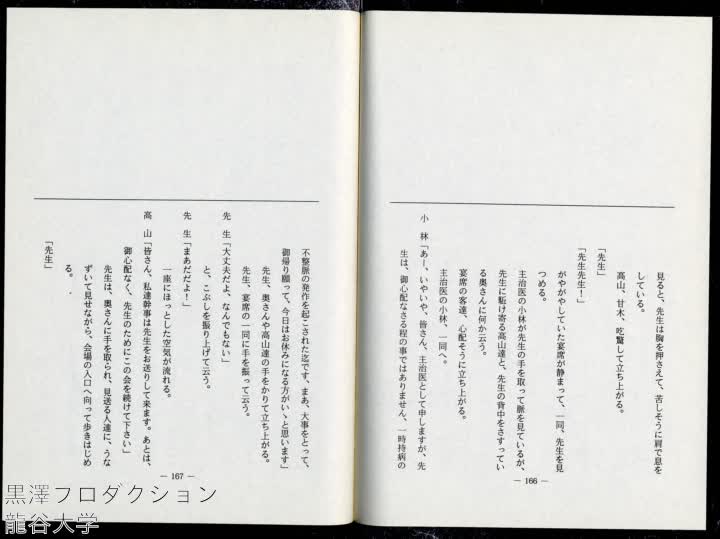 見ると、先生は胸を押さえて、苦しそうに肩で息を
している。
高山、甘木、吃驚して立ち上がる。
「先生」
「先生先生！」
がやがやしていた宴席が静まって、一同、先生を見
つめる。
主治医の小林が先生の手を取って脈を見ているが、
先生に駆け寄る高山達と、先生の背中をさすってい
る奥さんに何か云う。
宴席の客達、心配そうに立ち上がる。
主治医の小林、一同へ。
小　林「あー、いやいや、皆さん、主治医として申しますが、先
生は、御心配なさる程の事ではありません、一時持病の
― 166 ―
不整脈の発作を起こされた迄です、まあ、大事をとって、
御帰り願って、今日はお休みになる方がいゝと思います」
先生、奥さんや高山達の手をかりて立ち上がる。
先生、宴席の一同に手を振って云う。
先　生「大丈夫だよ、なんでもない」
と、こぶしを振り上げて云う。
先　生「まあだだよ！」
一座にほっとした空気が流れる。
高　山「皆さん、私達幹事は先生をお送りして来ます。あとは、
御心配なく、先生のためにこの会を続けて下さい」
先生は、奥さんに手を取られ、見送る人達に、うな
ずいて見せながら、会場の入口へ向って歩きはじめ
る。
「先生」
― 167 ―
黒澤プロダクション
龍谷大学